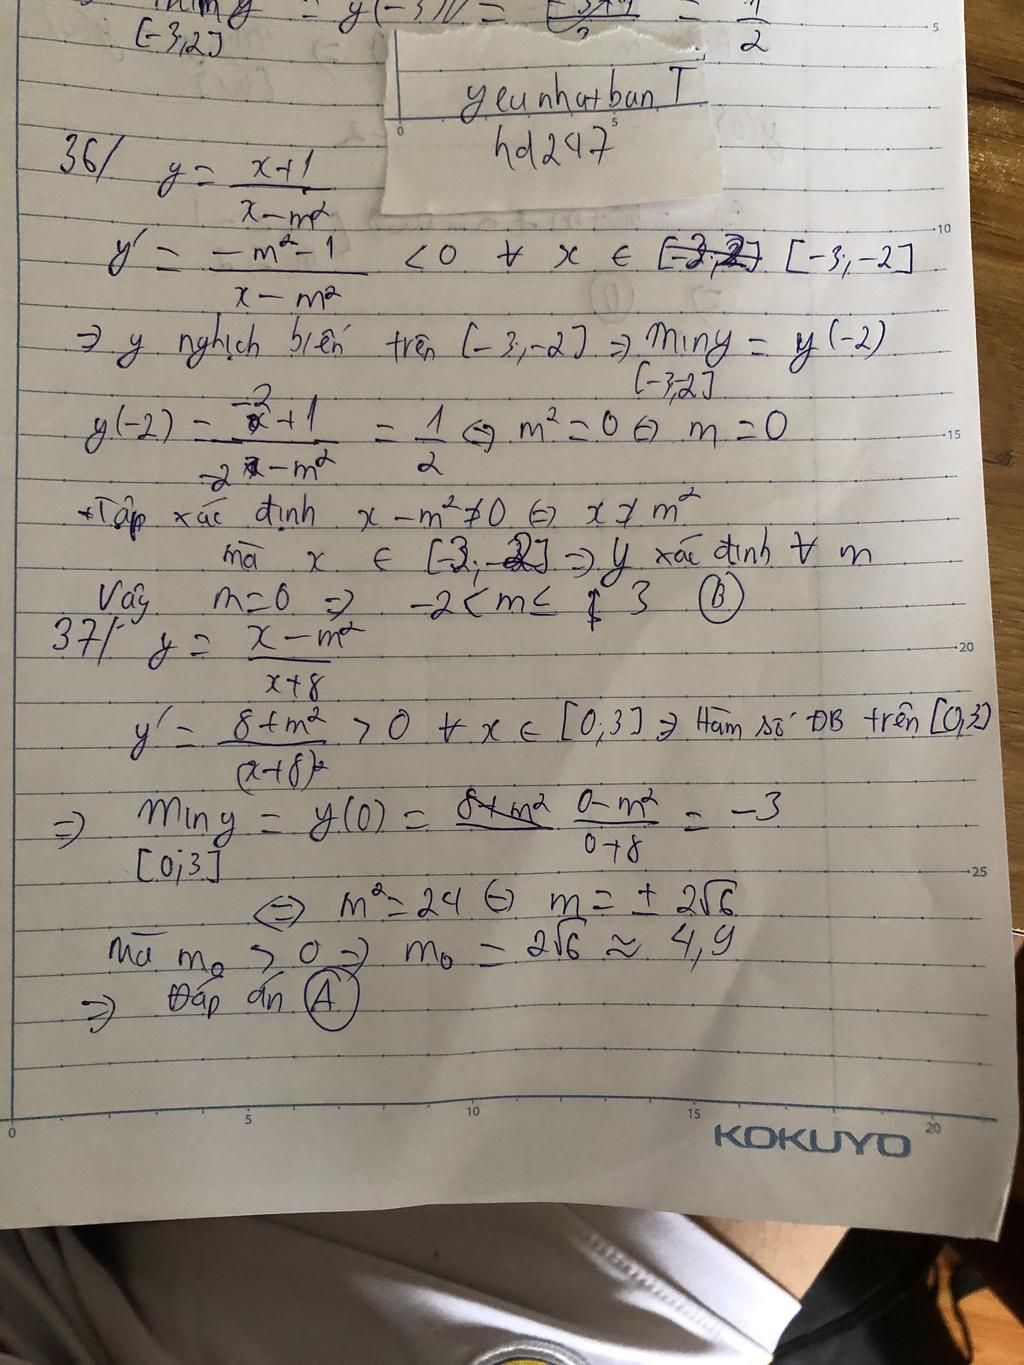 min y = y(-3) = = 1/2
[-3,2]
yeunhatban T
hd247
36/ y = (x+1)/(x-m²)
y' = (-m²-1)/(x-m²) < 0 ∀ x ∈ [-3,-2]
⇒ y nghịch biến trên [-3,-2] ⇒ Min y = y(-2)
[-3,-2]
y(-2) = (-2+1)/(-2-m²) = 1/2 ⇔ m² = 0 ⇔ m = 0
+Tập xác định x - m² ≠ 0 ⇔ x ≠ m²
mà x ∈ [-3,-2] ⇒ y xác định ∀ m
Vậy m=0 ⇒ -2 < m ≤ 3 (B)
37/ y = (x-m²)/(x+8)
y' = (8+m²)/(x+8)² > 0 ∀ x ∈ [0;3] ⇒ Hàm số ĐB trên [0,3]
⇒ Min y = y(0) = (0-m²)/(0+8) = -3
[0;3]
⇔ m² = 24 ⇔ m = ± 2√6
Mà m₀ > 0 ⇒ m₀ = 2√6 ≈ 4,9
⇒ Đáp án (A)
0 5 10 15 20
KOKUYO